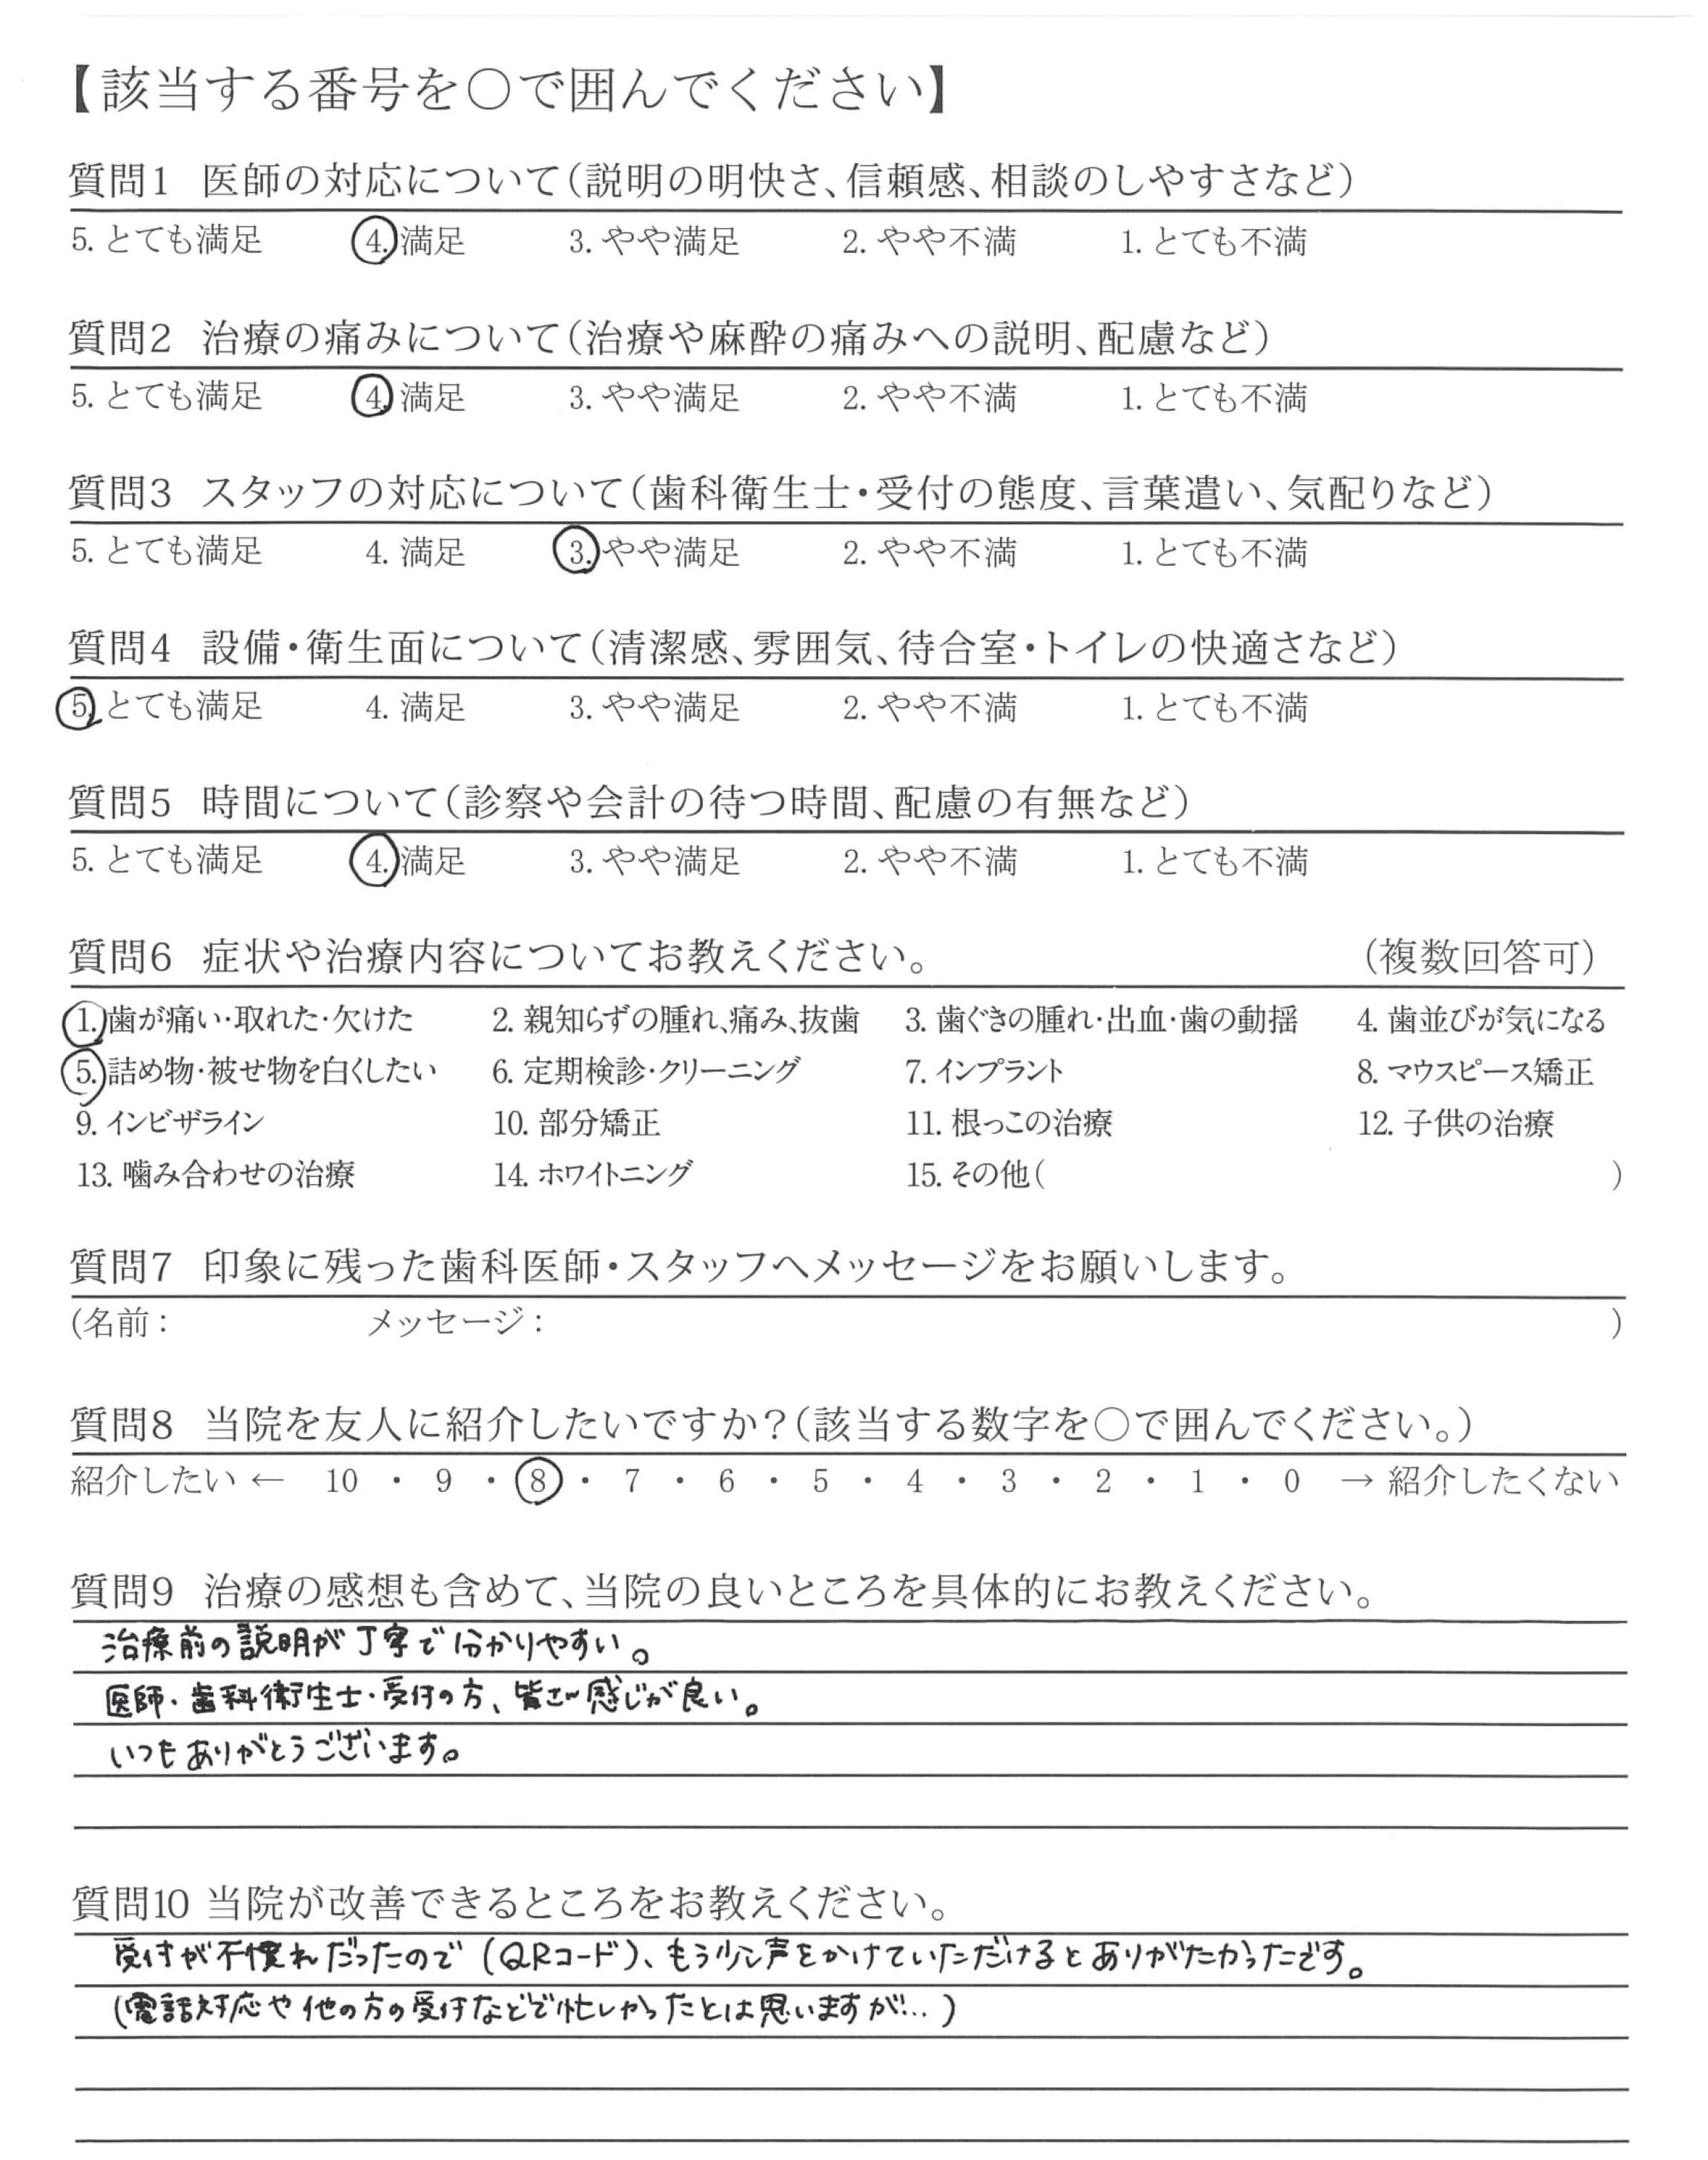 【該当する番号を○で囲んでください】
質問1 医師の対応について(説明の明快さ、信頼感、相談のしやすさなど)
5. とても満足 4. 満足 3. やや満足 2. やや不満 1. とても不満
質問2 治療の痛みについて(治療や麻酔の痛みへの説明、配慮など)
5. とても満足 4. 満足 3. やや満足 2. やや不満 1. とても不満
質問3 スタッフの対応について(歯科衛生士・受付の態度、言葉遣い、気配りなど)
5. とても満足 4. 満足 3. やや満足 2. やや不満 1. とても不満
質問4 設備・衛生面について(清潔感、雰囲気、待合室・トイレの快適さなど)
5. とても満足 4. 満足 3. やや満足 2. やや不満 1. とても不満
質問5 時間について(診察や会計の待つ時間、配慮の有無など)
5. とても満足 4. 満足 3. やや満足 2. やや不満 1. とても不満
質問6 症状や治療内容についてお教えください。 (複数回答可)
1. 歯が痛い・取れた・欠けた 2. 親知らずの腫れ、痛み、抜歯 3. 歯ぐきの腫れ・出血・歯の動揺 4. 歯並びが気になる
5. 詰め物・被せ物を白くしたい 6. 定期検診・クリーニング 7. インプラント 8. マウスピース矯正
9. インビザライン 10. 部分矯正 11. 根っこの治療 12. 子供の治療
13. 噛み合わせの治療 14. ホワイトニング 15. その他( )
質問7 印象に残った歯科医師・スタッフへメッセージをお願いします。
(名前: メッセージ: )
質問8 当院を友人に紹介したいですか?(該当する数字を○で囲んでください。)
紹介したい ← 10 ・ 9 ・ 8 ・ 7 ・ 6 ・ 5 ・ 4 ・ 3 ・ 2 ・ 1 ・ 0 → 紹介したくない
質問9 治療の感想も含めて、当院の良いところを具体的にお教えください。
治療前の説明が丁寧で分かりやすい。
医師・歯科衛生士・受付の方、皆さん感じが良い。
いつもありがとうございます。
質問10 当院が改善できるところをお教えください。
受付が不慣れだったので(QRコード)、もう少し声をかけていただけるとありがたかったです。
(電話対応や他の方の受付などで忙しかったとは思いますが…)